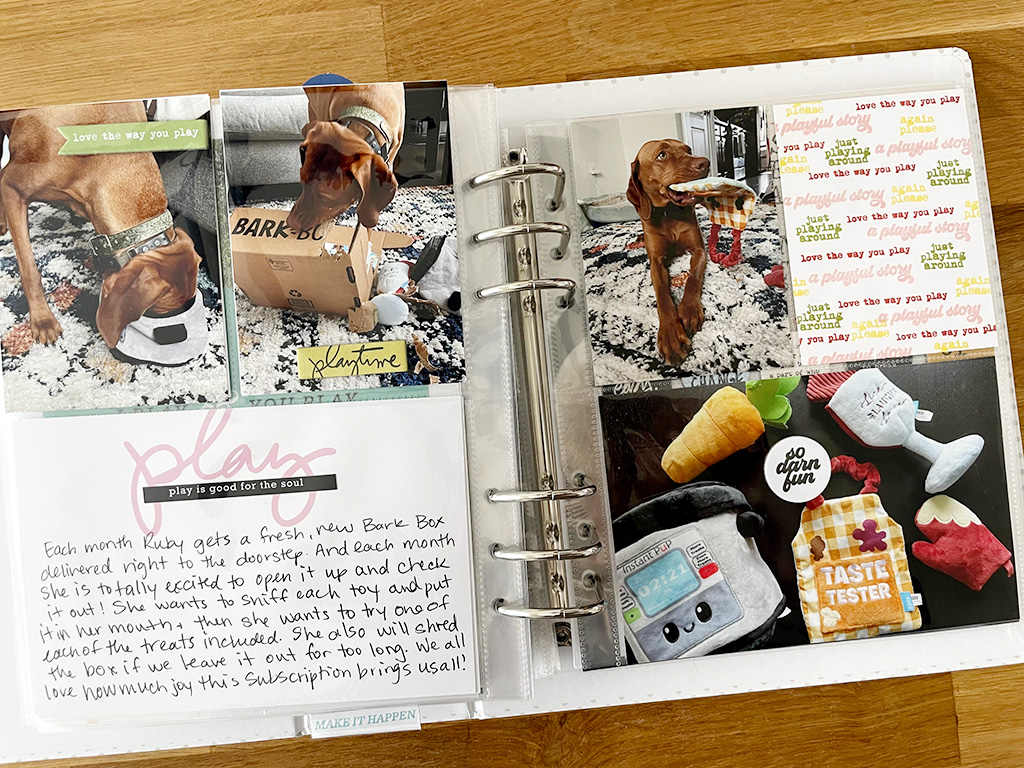 love the way you play
BARK-BO
playtime
YOU PLAY
play
play is good for the soul
Each month Ruby gets a fresh, new Bark Box
delivered right to the doorstep. And each month
she is totally excited to open it up and check
it out! She wants to sniff each toy and put
it in her mouth + then she wants to try one of
each of the treats included. She also will shred
the box if we leave it out for too long. We all
love how much joy this subscription brings us all!
MAKE IT HAPPEN
please love the way you play
a playful story again
please
you play just
playing
around a playful story
again
please love the way you play just
playing
around
a playful story again
please
just
playing
around love the way you play
a playful story
love the way you play just
playing
around
a playful story again
please
just
playing
around love the way you play
again
please a playful story
y you play love the way you play
a playful story again
CHANCE
a part of who
so
darn
fun
Instant PuP
02:21
TASTE
TESTER